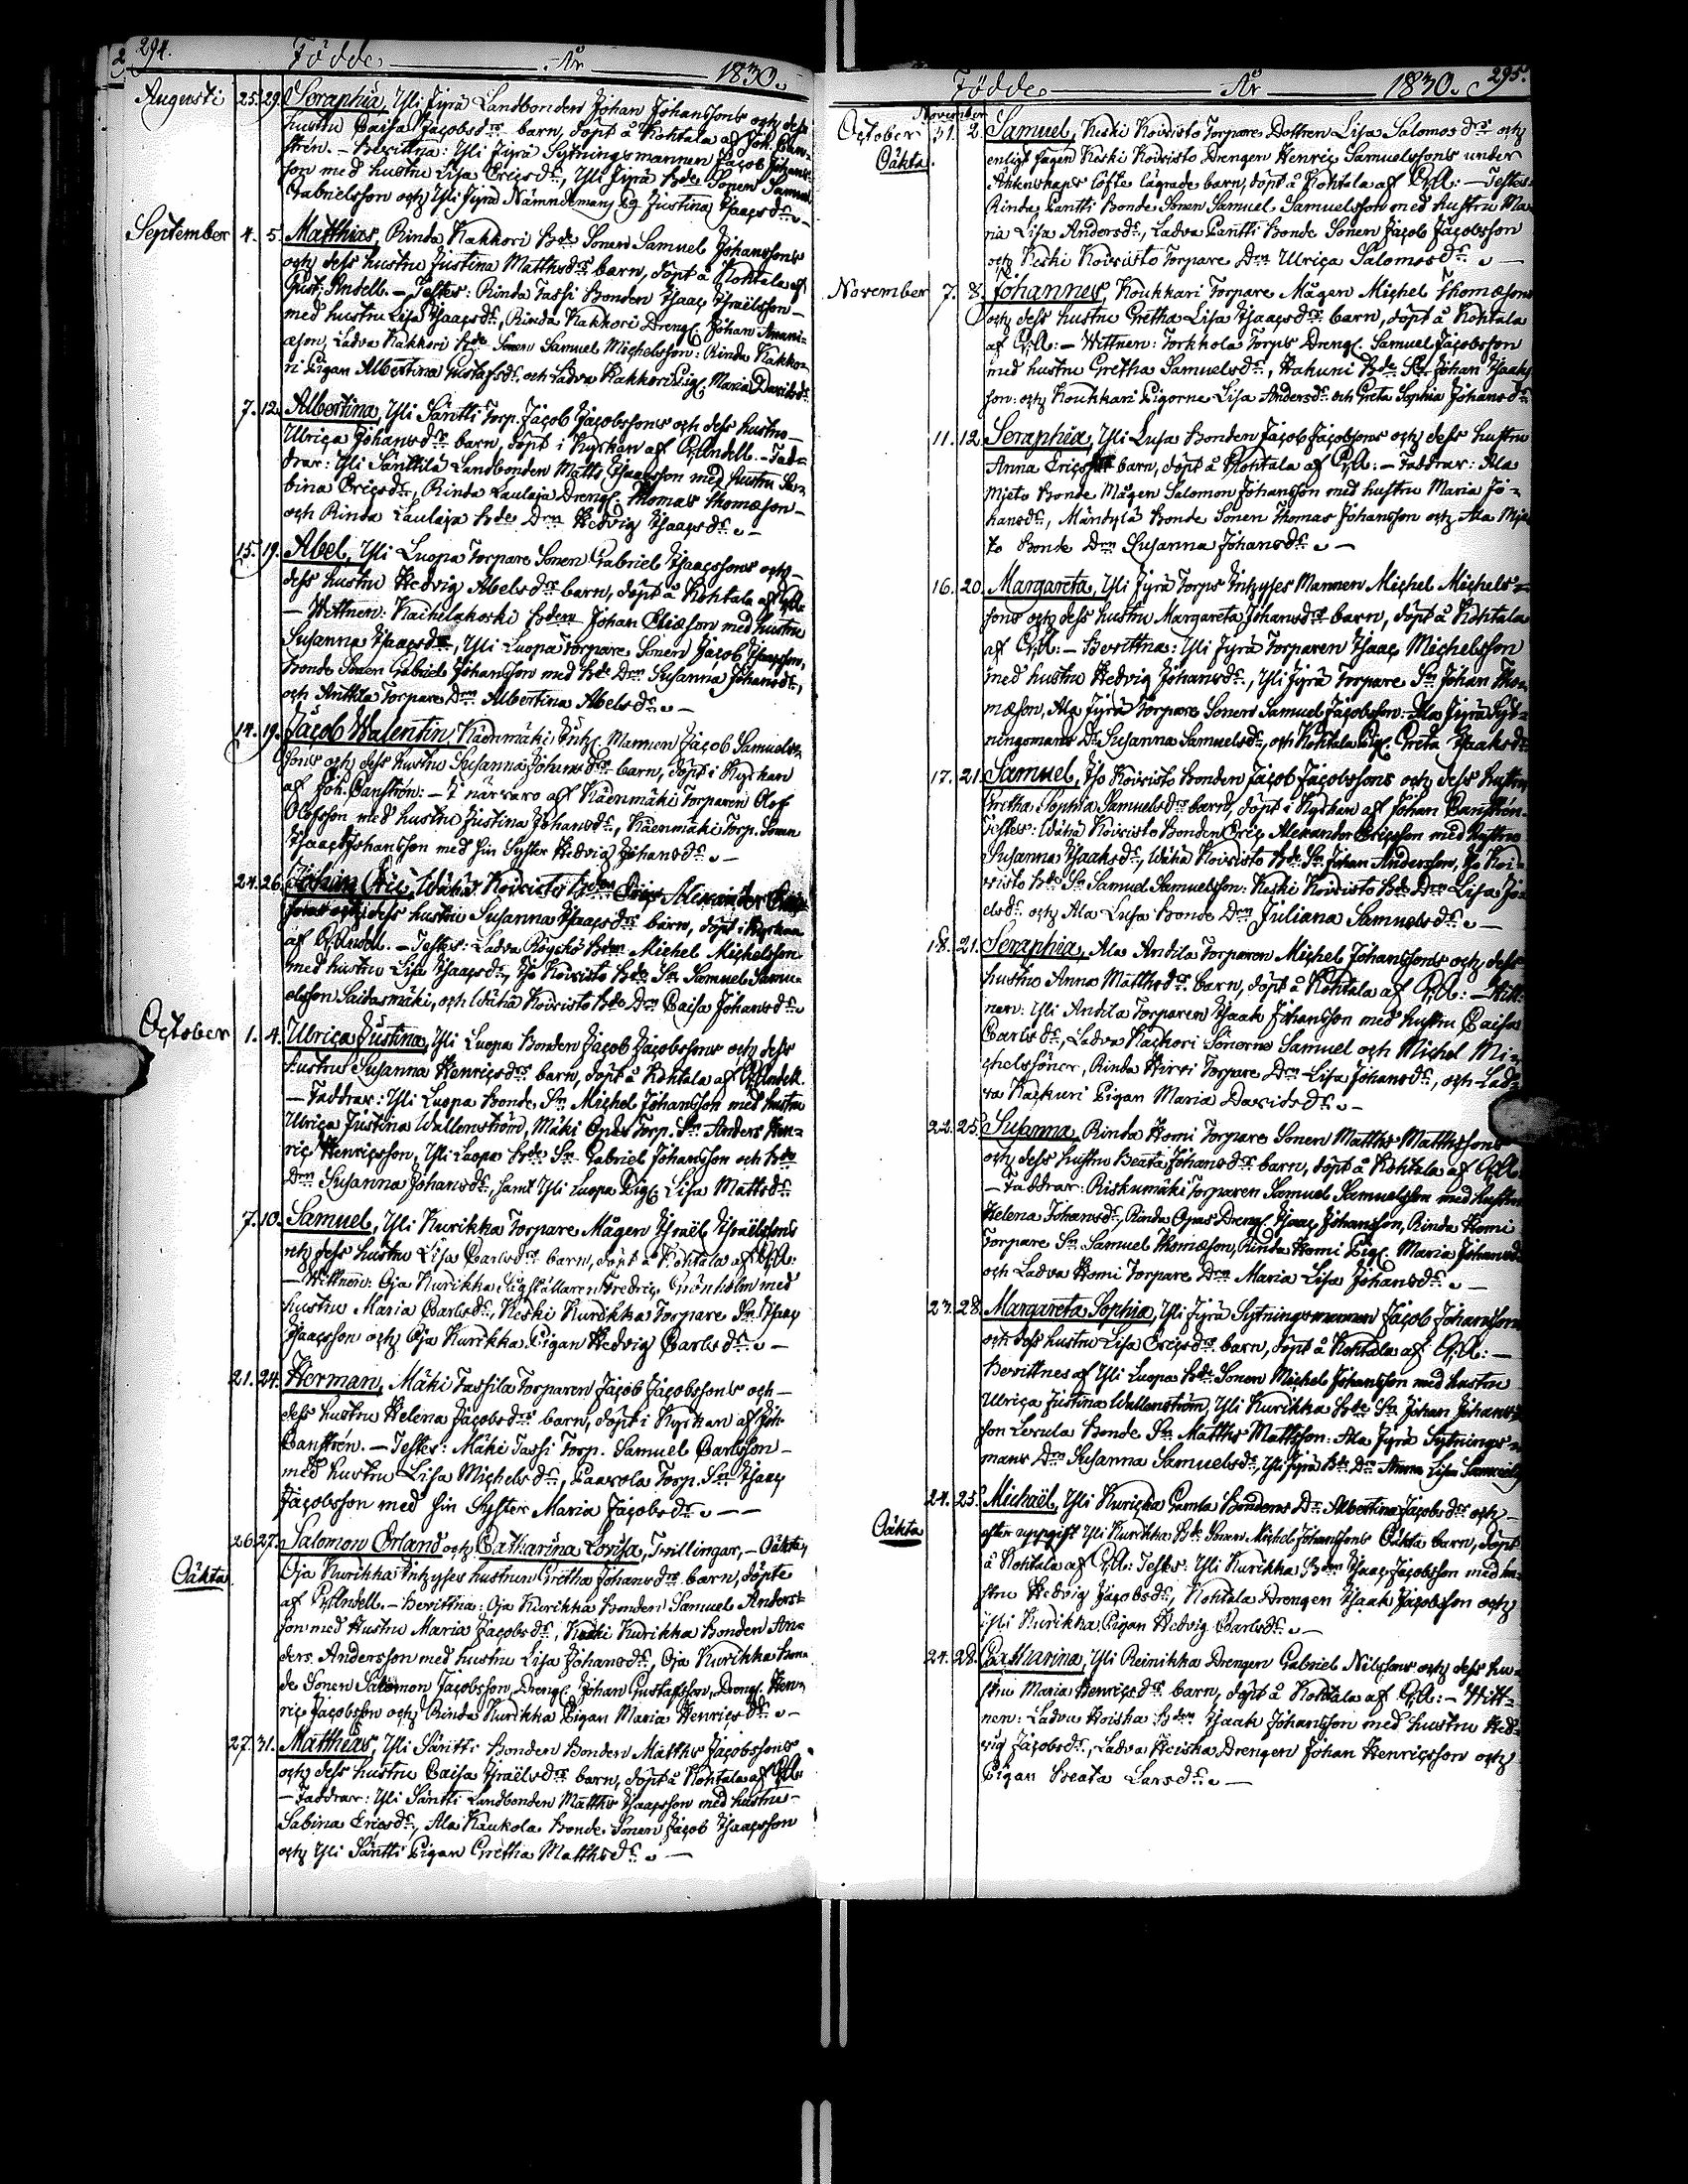 294.
Födde År 1830.
Augusti 25. 29. Seraphia, Yli Jyrä Landbonden Johan Johanssons och dess
hustru Caisa Jacobsdrs barn, döpt å Kohtala af Joh. Can-
strén. – Bevittna: Yli Jyrä Sytningsmannen Jacob Johans-
son med hustru Lisa Ericsdr, Yli Jyrä Bde Sonen Samuel
Gabrielsson och Yli Jyrä Nämndemans Justina Isaacsdr
September 4. 5. Matthias, Rinda Kakkori Bde Sonen Samuel Johanssons
och dess hustru Justina Matthsdrs barn, döpt å Kohtala af
Gust. Andell. – Testes: Rinda Tassi Bonden Isaac Israëlsson
med hustru Lisa Isaacsdr, Rinda Kakkori Dreng. Johan Anani-
æson, Ladva Kakkori Bde Sonen Samuel Michelsson: Rinda Kakko-
ri Pigan Albertina Gustafsdr och Ladva Kakkori Pig. Maria Davidsdr
7. 12. Albertina, Yli Säntti Torp. Jacob Jacobssons och dess hustru
Ulrica Johansdrs barn, döpt i Kyrkan af G. Andell. – Fad-
drar: Yli Säntilä Landbonden Matts Isaacsson med hustru Sa-
bina Ericsdr, Rinda Laulaja Dreng. Thomas Thomæson
och Rinda Laulaja Bde Drn Hedvig Isaacsdr
15. 19. Abel, Yli Luopa Torpare Sonen Gabriel Isaacssons och
dess hustru Hedvig Abelsdrs barn, döpt å Kohtala af G:A:
– Wittnen: Kaihelakoski Bden Johan Eliæson med hustru
Susanna Isaacsdr, Yli Luopa Torpare Sonen Jacob Isaacsson,
Bonde Sonen Gabriel Johansson med Bde Drn Susanna Johansdr,
och Anttila Torpare Drn Albertina Abelsdr
14. 19. Jacob Walentin, Käenmäki Inhys. Mannen Jacob Samuels-
sons och dess hustru Susanna Johansdrs barn, döpt i Kyrkan
af Joh. Canstrén: – I närvaro af Käenmäki Torparen Olof
Olofsson med hustru Justina Johansdr, Käenmäki Torp. Sonen
Isaac Johansson med sin Syster Hedvig Johansdr
24. 26. Johan Eric, Wähä Koivisto Bden Erics Alexander Erics-
sons och dess hustru Susanna Isaacsdrs barn, döpt i Kyrkan
af G. Andell. – Testes: Ladva Röyskö Bden Michel Michelsson
med hustru Lisa Isaacsdr, Iso Koivisto Bde Sn Samuel Samu-
elsson Saidasmäki, och Wähä Koivisto Bde Drn Caisa Johansdr
October 1. 4. Ulrica Justina, Yli Luopa Bonden Jacob Jacobssons och dess
hustru Susanna Henricsdrs barn, döpt å Kohtala af G. Andell.
– Faddrar: Yli Luopa Bonde Sn Michel Johansson med hustru
Ulrica Justina Wallenström, Mäki Opas Torp. Sn Anders Hen-
ric Henricsson, Yli Luopa Bde Sn Gabriel Johansson och Bde
Drn Susanna Johansdr, samt Yli Luopa Pig. Lisa Mattsdr
7. 10. Samuel, Yli Kurikka Torpare Mågen Israël Israëlssons
och dess hustru Lisa Carlsdrs barn, döpt å Kohtala af G:A:
– Wittnen: Oja Kurikka Lägställaren Fredric Grönholm med
hustru Maria Carlsdr, Keski Kurikka Torpare Sn Isaac
Isaacsson och Oja Kurikka Pigan Hedvig Carlsdr
21. 24. Herman, Mäki Tassila Torparen Jacob Jacobssons och
dess hustru Helena Jacobsdrs barn, döpt i Kyrkan af Joh.
Canstrén. – Testes: Mäki Tassi Torp. Samuel Carlsson
med hustru Lisa Michelsdr, Paavola Torp. Sn Isaac
Jacobsson med sin Syster Maria Jacobsdr
26. 27. Salomon Orland och Catharina Lovisa, Tvillingar, – Oäkta,
Oäkta Oja Kurikka Inhyses hustrun Gretha Johansdrs barn, döpte
af G. Andell. – Bevittna: Oja Kurikka Bonden Samuel Anders-
son med Hustru Maria Jacobsdr, Keski Kurikka Bonden An-
ders Andersson med hustru Lisa Johansdr, Oja Kurikka Bon-
de Sonen Salomon Jacobsson, Dreng. Johan Gustafsson, Dreng. Hen-
ric Jacobsson och Rinda Kurikka Pigan Maria Henricsdr
27. 31. Matthias, Yli Säntti Bonden Bonden Matths Jacobssons
och dess hustru Caisa Israëlsdrs barn, döpt å Kohtala af G:A:
– Faddrar: Yli Säntti Landbonden Matths Isaacsson med hustru
Sabina Ericsdr, Ala Kaukola Bonde Sonen Jacob Isaacsson
och Yli Säntti Pigan Gretha Matthsdr
295.
Födde År 1830.
November
October 31. 2. Samuel, Keski Koivisto Torpare Dottren Lisa Salomosdrs och
Oäkta enligt sagen Keski Koivisto Drengen Henric Samuelssons under
Äktenskaps löfte lägrade barn, döpt å Kohtala af G:A: – Testes:
Rinda Pantti Bonde Sonen Samuel Samuelsson med hustru Ma-
ria Lisa Andersdr, Ladva Pantti Bonde Sonen Jacob Jacobsson
och Keski Koivisto Torpare Drn Ulrica Salomosdr
November 7. 8. Johannes, Koukkari Torpare Mågen Michel Thomæsons
och dess hustru Gretha Lisa Isaacsdrs barn, döpt å Kohtala
af G:A: – Wittnen: Torkkola Torps Dreng. Samuel Jacobsson
med hustru Gretha Samuelsdr, Hakuni Bde Sn Johan Isaacs-
son: och Koukkari Pigorne Lisa Andersdr och Greta Sophia Johansdr
11. 12. Seraphia, Yli Lusa Bonden Jacob Jacobssons och dess hustru
Anna Ericsdrs barn, döpt å Kohtala af G:A: – Faddrar: Ala
Mieto Bonde Mågen Salomon Johansson med hustru Maria Jo-
hansdr, Mändylä Bonde Sonen Thomas Johansson och Ala Mie-
to Bonde Drn Susanna Johansdr
16. 20. Margareta, Yli Jyrä Torps Inhyses Mannen Michel Michels-
sons och dess hustru Margareta Johansdrs barn, döpt å Kohtala
af G:A: – Bevittna: Yli Jyrä Torparen Isaac Michelsson
med hustru Hedvig Johansdr, Yli Jyrä Torpare Sn Johan Tho-
mæson, Ala Jyrä Torpare Sonen Samuel Jacobsson: Ala Jyrä Syt-
ningsmans Dr Susanna Samuelsdr, och Kohtala Pig. Greta Isaaksdr
17. 21. Samuel, Iso Koivisto Bonden Jacob Jacobssons och dess hustru
Gretha Sophia Samuelsdrs barn, döpt i Kyrkan af Johan Canstrén.
Testes: Wähä Koivisto Bonden Eric Alexander Ericsson med hustru
Susanna Isaaksdr, Wähä Koivisto Bde Sn Johan Andersson, Iso Koi-
visto Bde Sn Samuel Samuelsson: Keski Koivisto Bde Drn Lisa Jo-
elsdr och Ala Lusa Bonde Drn Juliana Samuelsdr
18. 21. Seraphia, Ala Anttila Torparen Michel Johanssons och dess
hustru Anna Matthsdrs barn, döpt å Kohtala af G:A: – Witt-
nen: Yli Antila Torparen Isaak Johansson med hustru Caisa
Carlsdr, Ladva Kackori Sönerne Samuel och Michel Mi-
chelssöner, Rinda Hirvi Torpare Drn Lisa Johansdr, och Lad-
va Kackuri Pigan Maria Davidsdr
22. 25. Susanna, Rinda Homi Torpare Sonen Matths Matthssons
och dess hustru Beata Johansdrs barn, döpt å Kohtala af G:A:
– Faddrar: Riskumäki Torparen Samuel Samuelsson med hustru
Helena Johansdr, Rinda Opas Dreng. Isaac Johansson, Rinda Homi
Torpare Sn Samuel Thomæson, Rinda Homi Pig. Maria Johansdr
och Ladva Homi Torpare Drn Maria Lisa Johansdr
23. 28. Margareta Sophia, Yli Jyrä Sytningsmannen Jacob Johanssons
och dess hustru Lisa Ericsdrs barn, döpt å Kohtala af G:A: –
Bevittnes af Yli Luopa Bde Sonen Michel Johansson med hustru
Ulrica Justina Wallenström, Yli Kurikka Bde Sn Johan Johans-
son Levula Bonde Sn Matths Mattsson: Ala Jyrä Sytnings-
mans Drn Susanna Samuelsdr, Yli Jyrä Bde Drn Anna Lisa Samuelsdr
24. 25. Michaël, Yli Kuricka Gamla Bondens Dr Albertina Jacobsdrs och
Oäkta efter uppgift Yli Kurikka Bde Sonen Michel Johanssons Oäkta barn, döpt
å Kohtala af G:A: Testes: Yli Kurikka Bden Isaac Jacobsson med hu-
stru Hedvig Jacobsdr, Kohtala Drengen Isaak Jacobsson och
Yli Kurikka Pigan Hedvig Carlsdr
24. 28. Catharina, Yli Reinikka Drengen Gabriel Nilssons och dess hu-
stru Maria Henricsdrs barn, döpt å Kohtala af G:A: – Witt-
nen: Ladva Hoiska Bden Isaak Johansson med hustru Hed-
vig Jacobsdr, Ladva Heiska Drengen Johan Henricsson och
Pigan Beata Larsdr